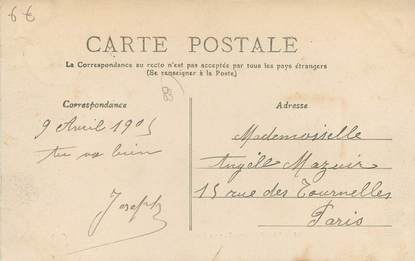 6 €
CARTE POSTALE
La Correspondance au recto n'est pas acceptée par tous les pays étrangers
(Se renseigner à la Poste)
Correspondance
Adresse
9 Avril 1905
tu va bien
Joseph
Mademoiselle
Angèle Mazuir
15 rue des Tournelles
Paris